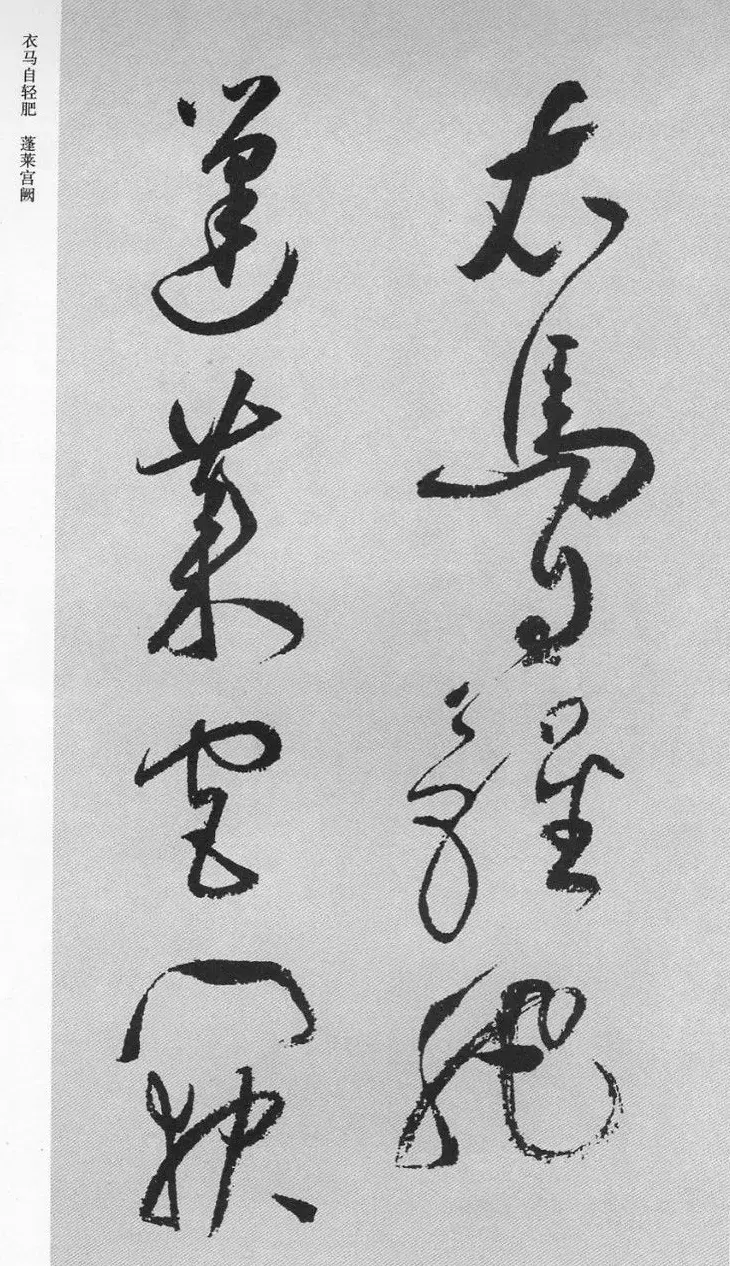 衣馬自輕肥
蓬萊宮闕
衣马自轻肥　蓬莱宫阙